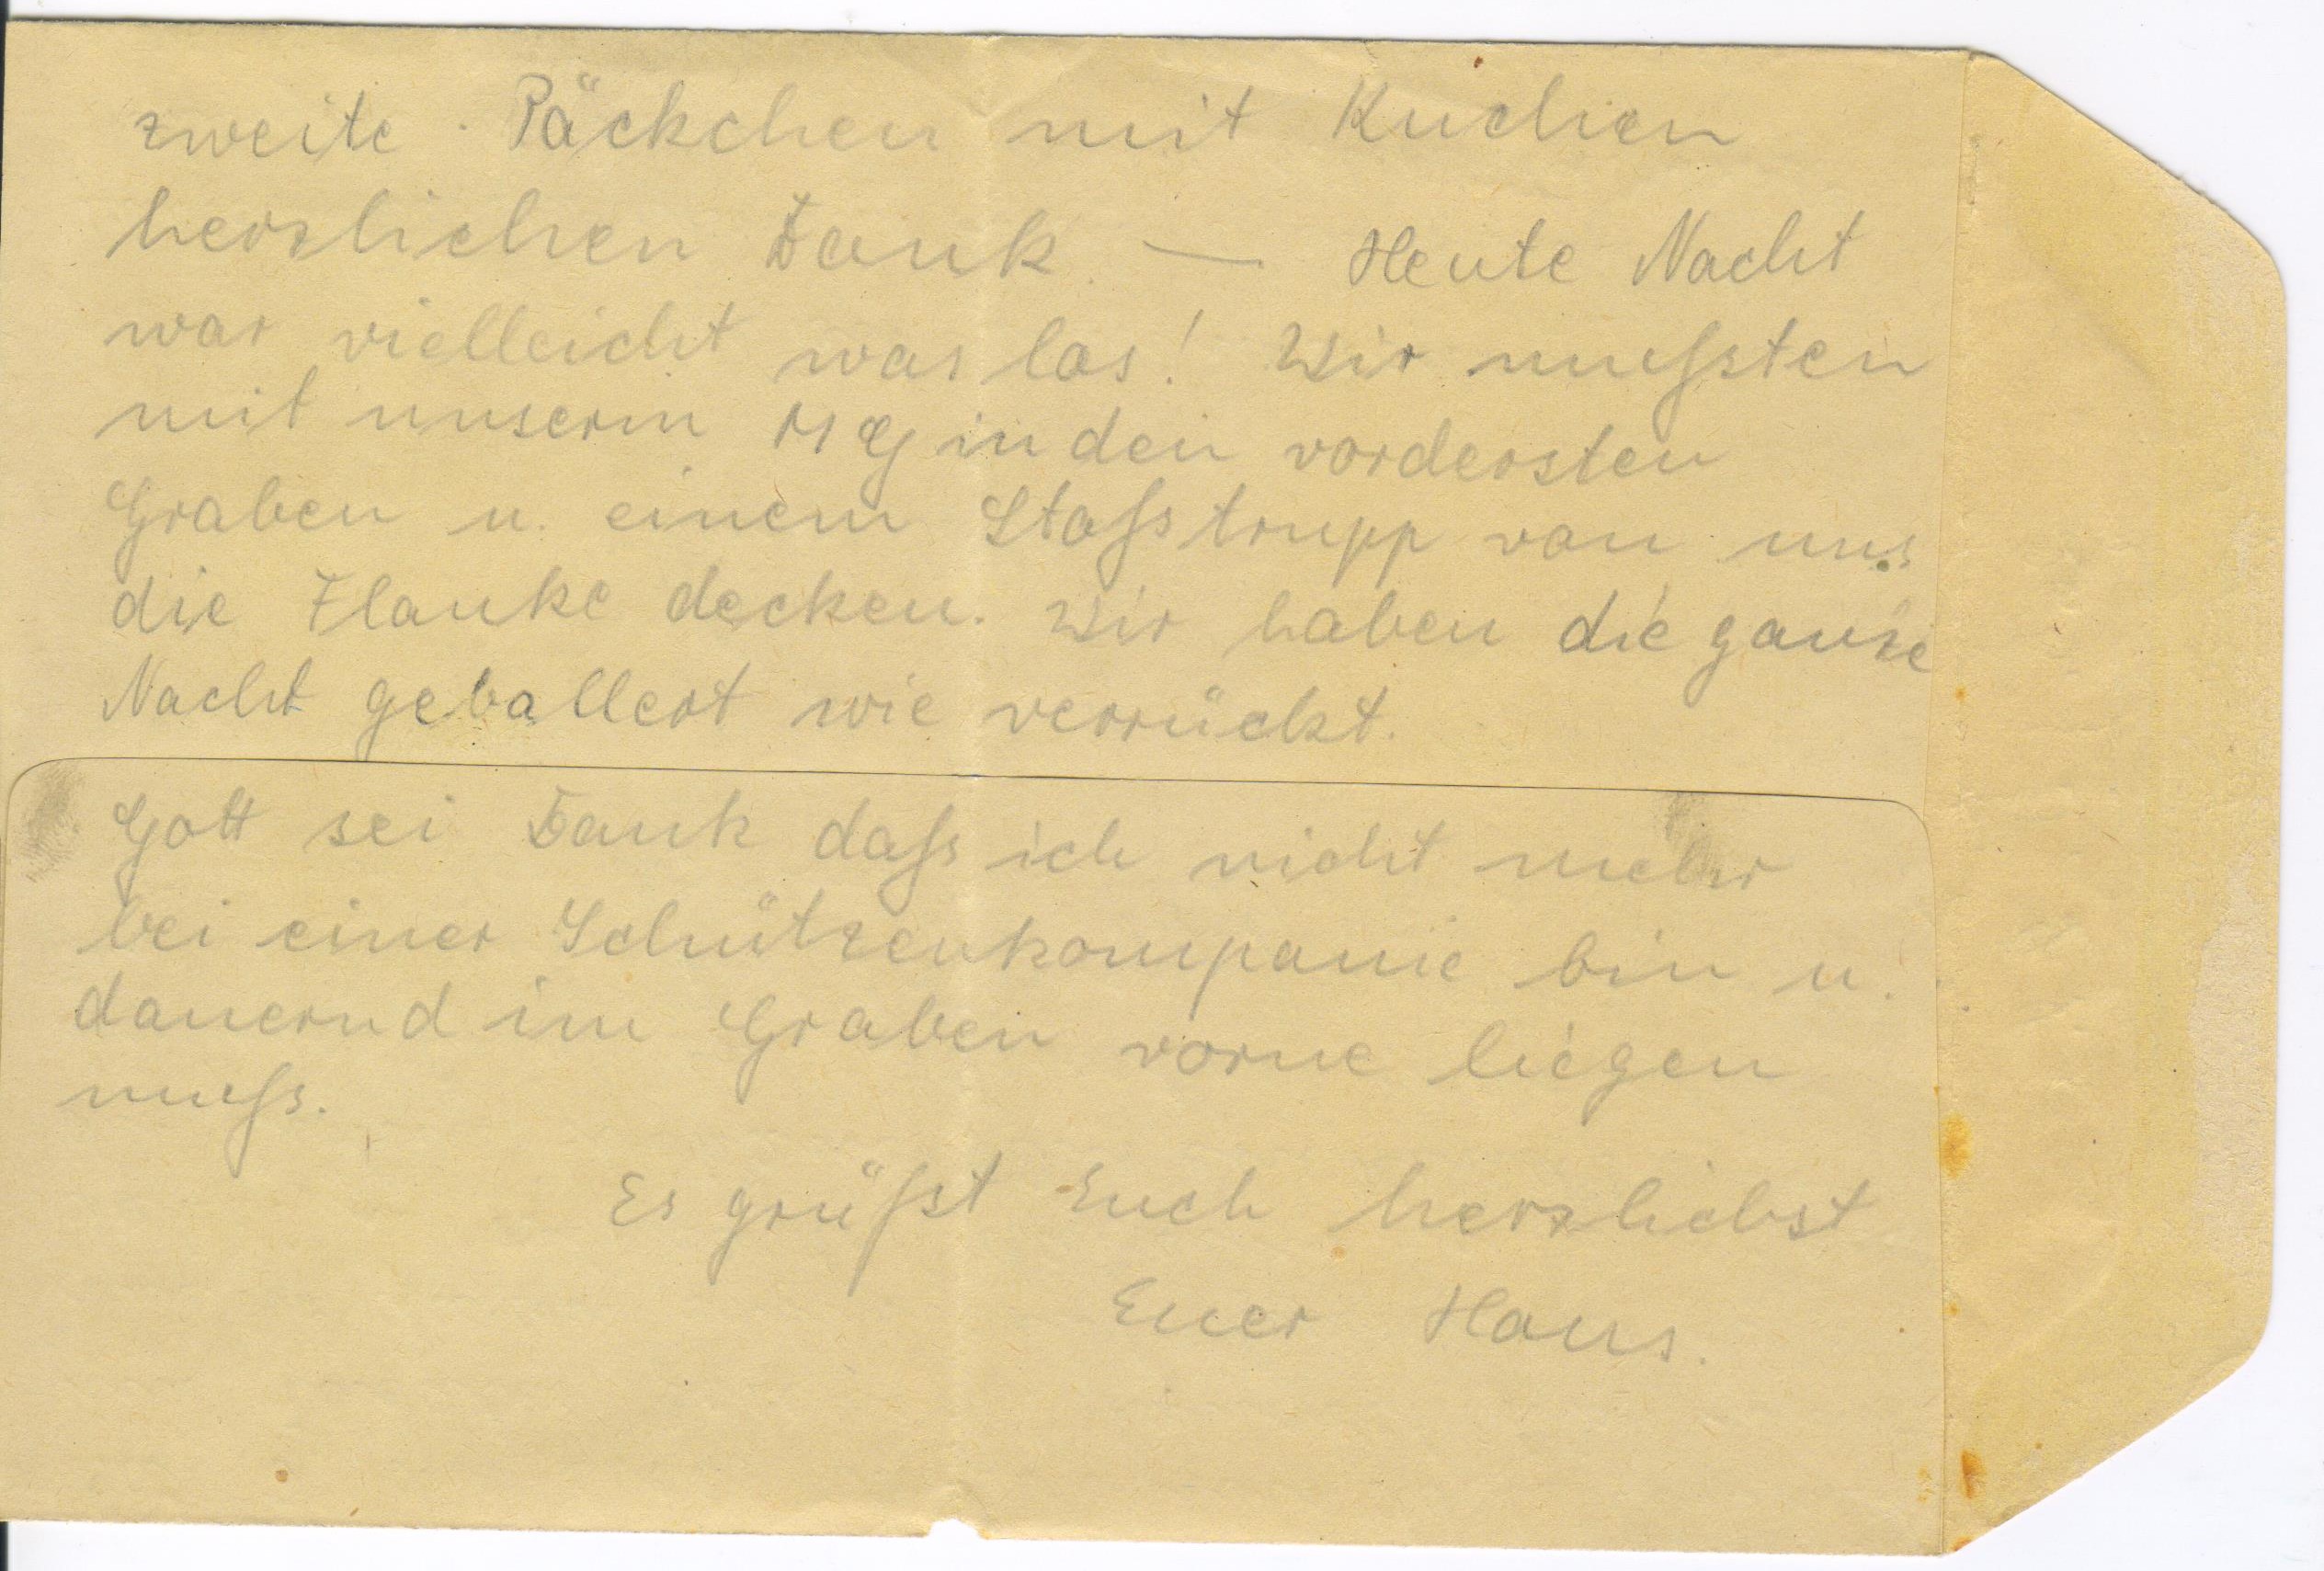 zweite Päckchen mit Kuchen
herzlichen Dank. — Heute Nacht
war vielleicht was los! Wir mußsten
mit unserm MG in den vordersten
Graben u. einem Stoßstrupp von uns
die Flanke decken. Wir haben die ganze
Nacht geballert wie verrückt.
Gott sei Dank daß ich nicht mehr
bei einer Schützenkompanie bin u.
dauernd im Graben vorne liegen
muß.
Es grüßt Euch herzlichst
Euer Hans.